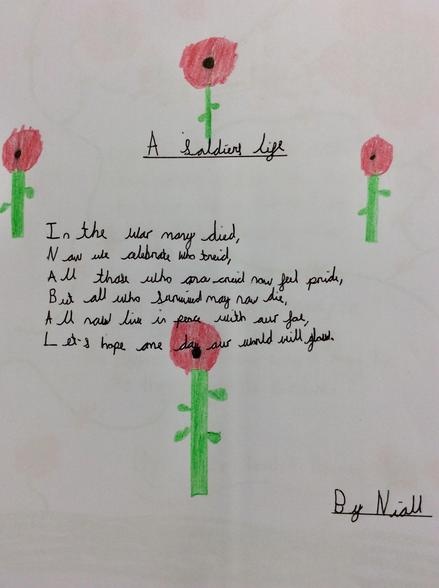 A Soldiers life
In the war many died,
Now we celebrate who treid,
All those who once cried now feel pride,
But all who survived may now die,
All now live in peace with our foe,
Let's hope one day our world will glow.
By Niall